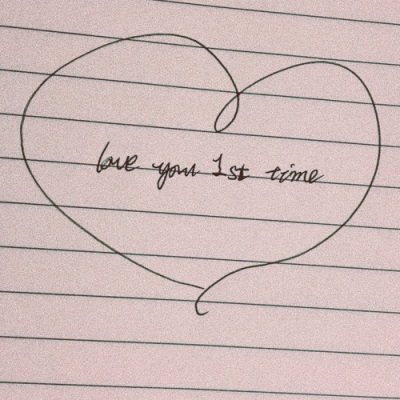 love your 1st time